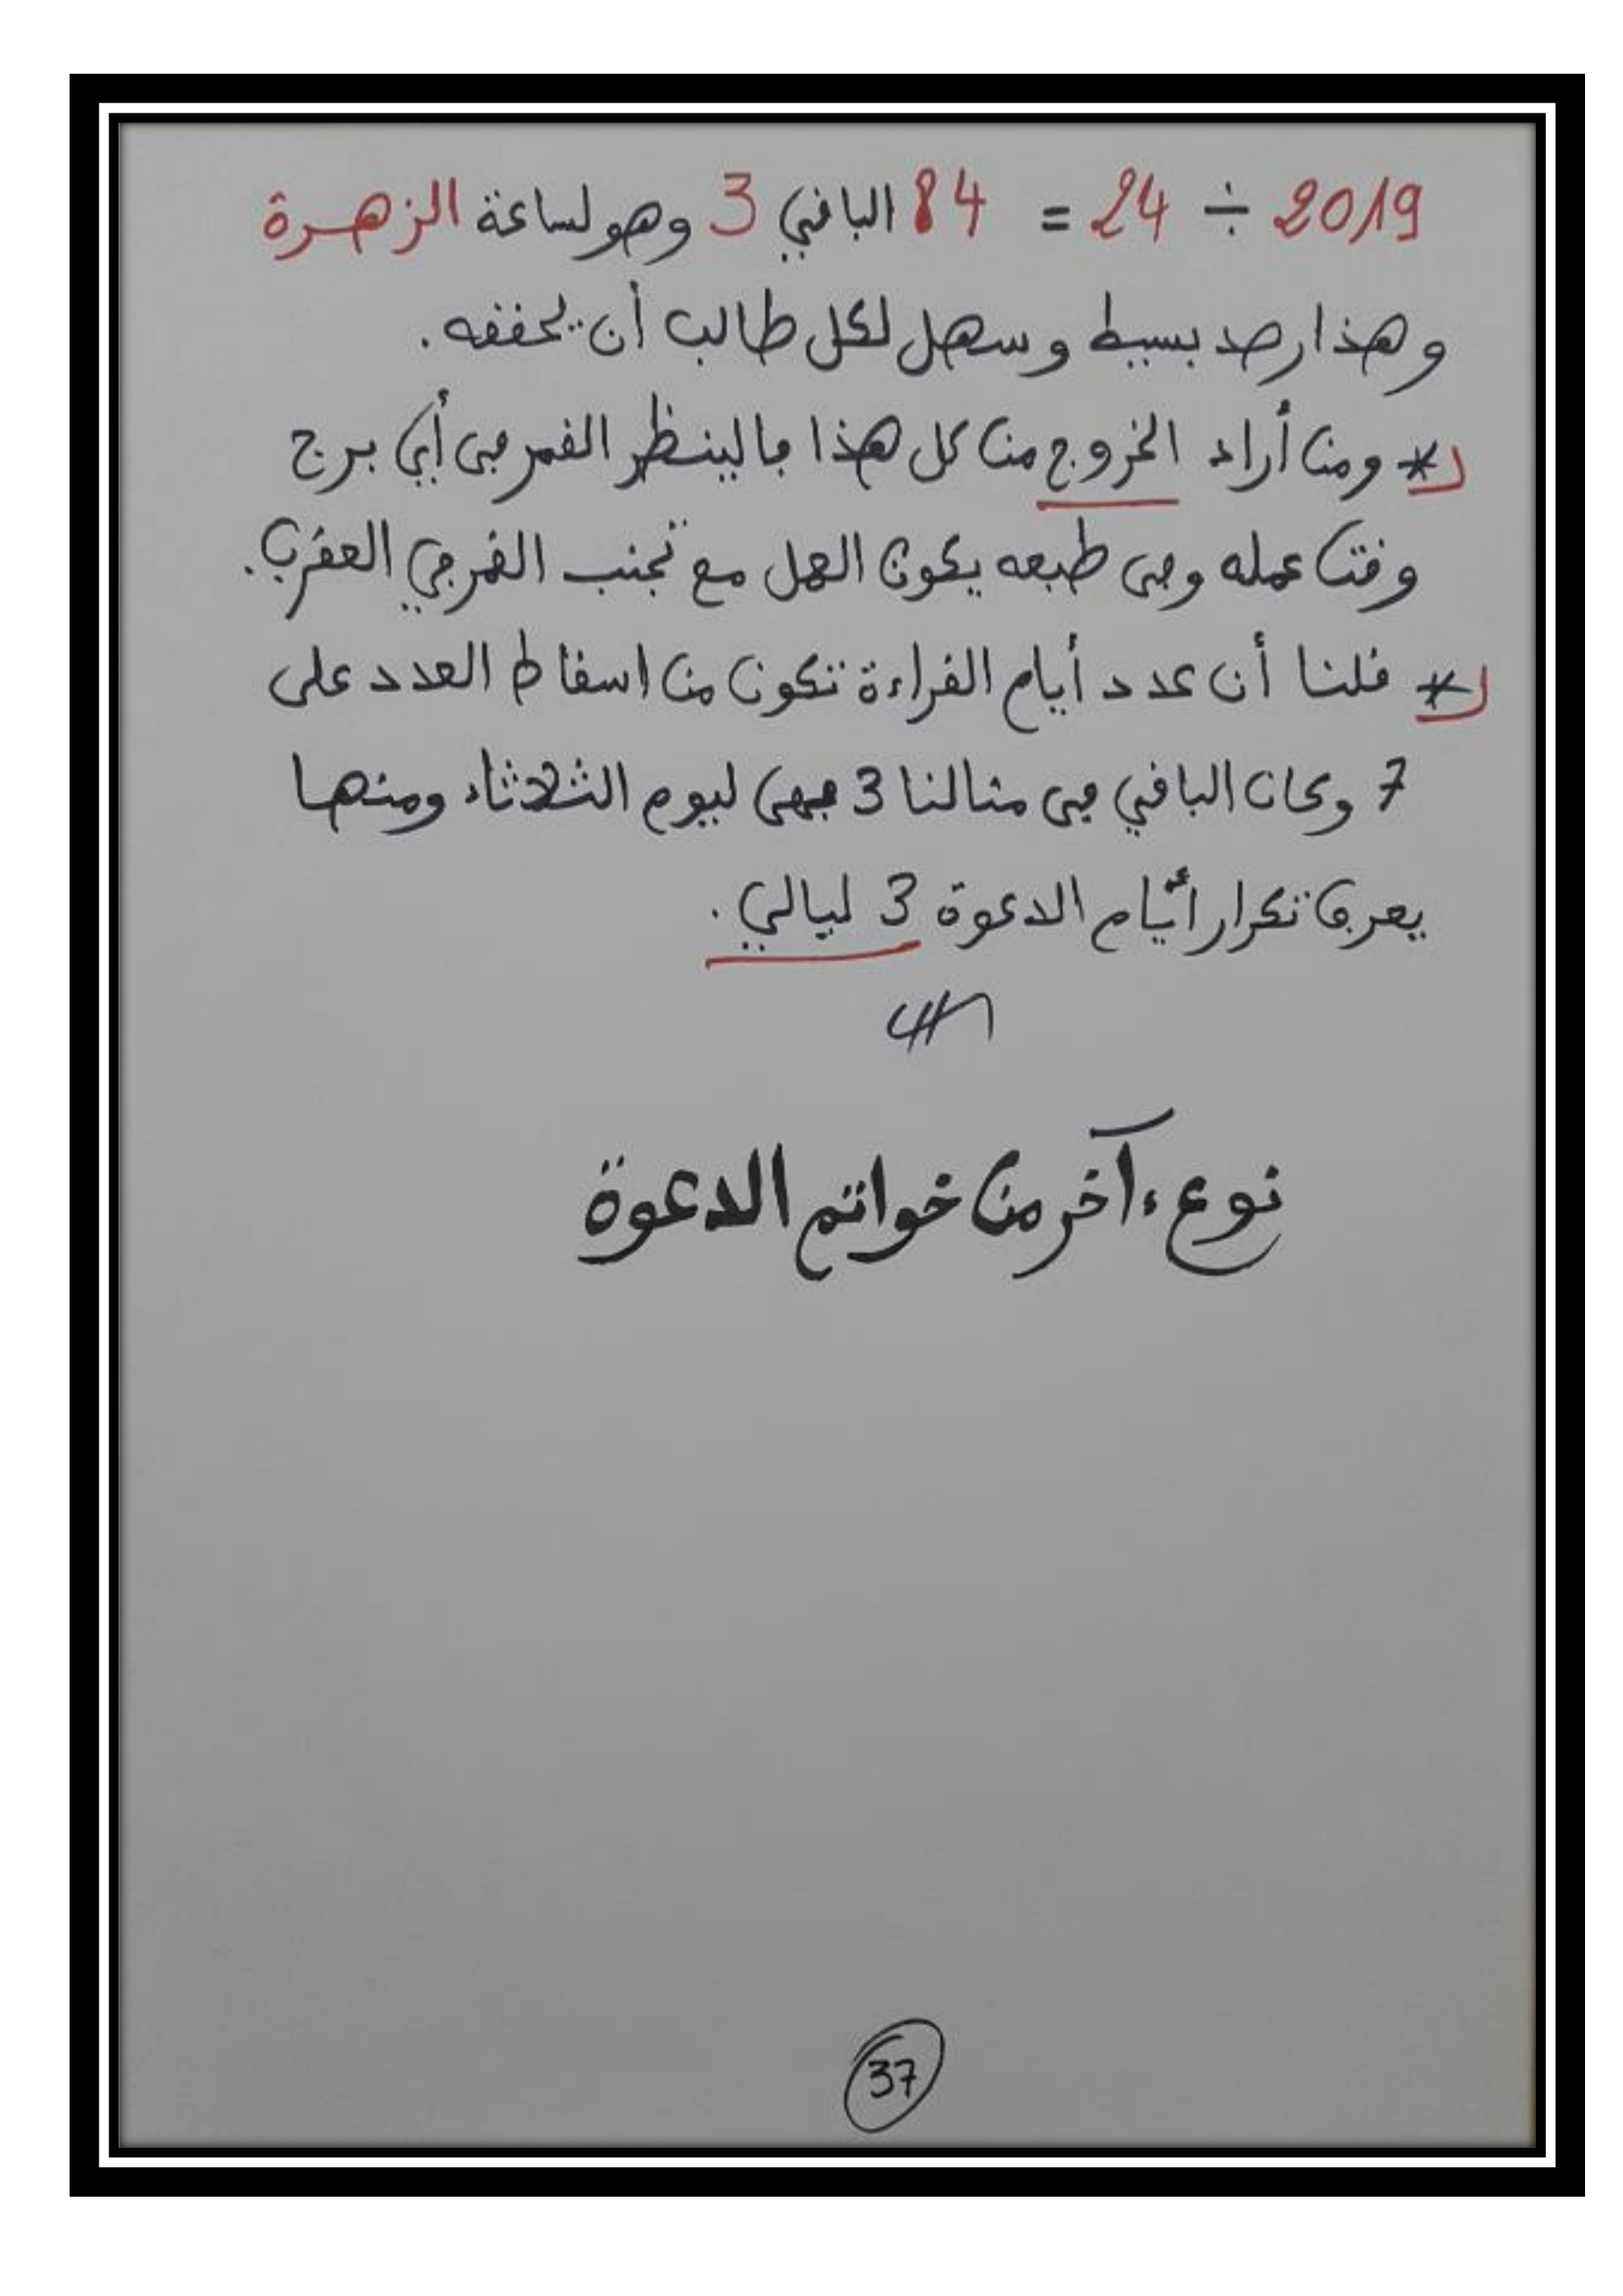 2019 ÷ 24 = 84 الباقي 3 وهو لساعة الزهرة
وهذا رصد بسيط وسهل لكل طالب أن يحققه.
* ومن أراد الخروج من كل هذا فالينظر القمر في أي برج
وقت عمله وفي طبعه يكون العمل مع تجنب القمر في العقرب.
* قلنا أن عدد أيام القراءة تكون من اسقاط العدد على
7 وكان الباقي في مثالنا 3 فهي ليوم الثلاثاء ومنها
يعرف تكرار أيام الدعوة 3 ليالي.
نوع ءآخر من خواتم الدعوة
37